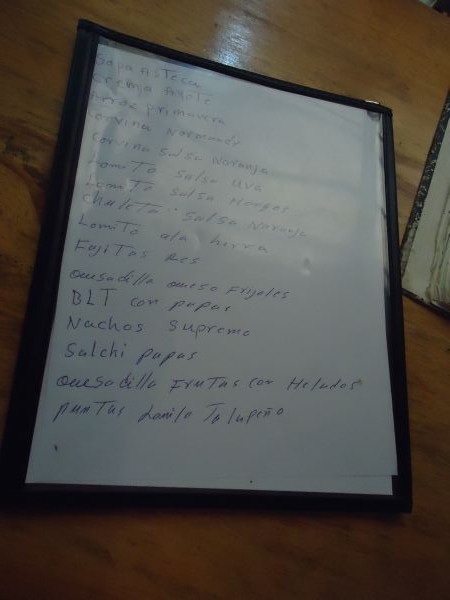 Sopa Asteca
Crema Ayote
primavera
Corvina Normandy
Corvina Salsa Naranja
Lomito Salsa Uva
Lomito Salsa Hongos
Chuleta Salsa Naranja
Lomito ala
Fajitas Res
Quesadilla queso Frijoles
BLT con papas
Nachos Supremo
Salchi papas
Quesadilla Frutas con Helados
puntas Jalapeño